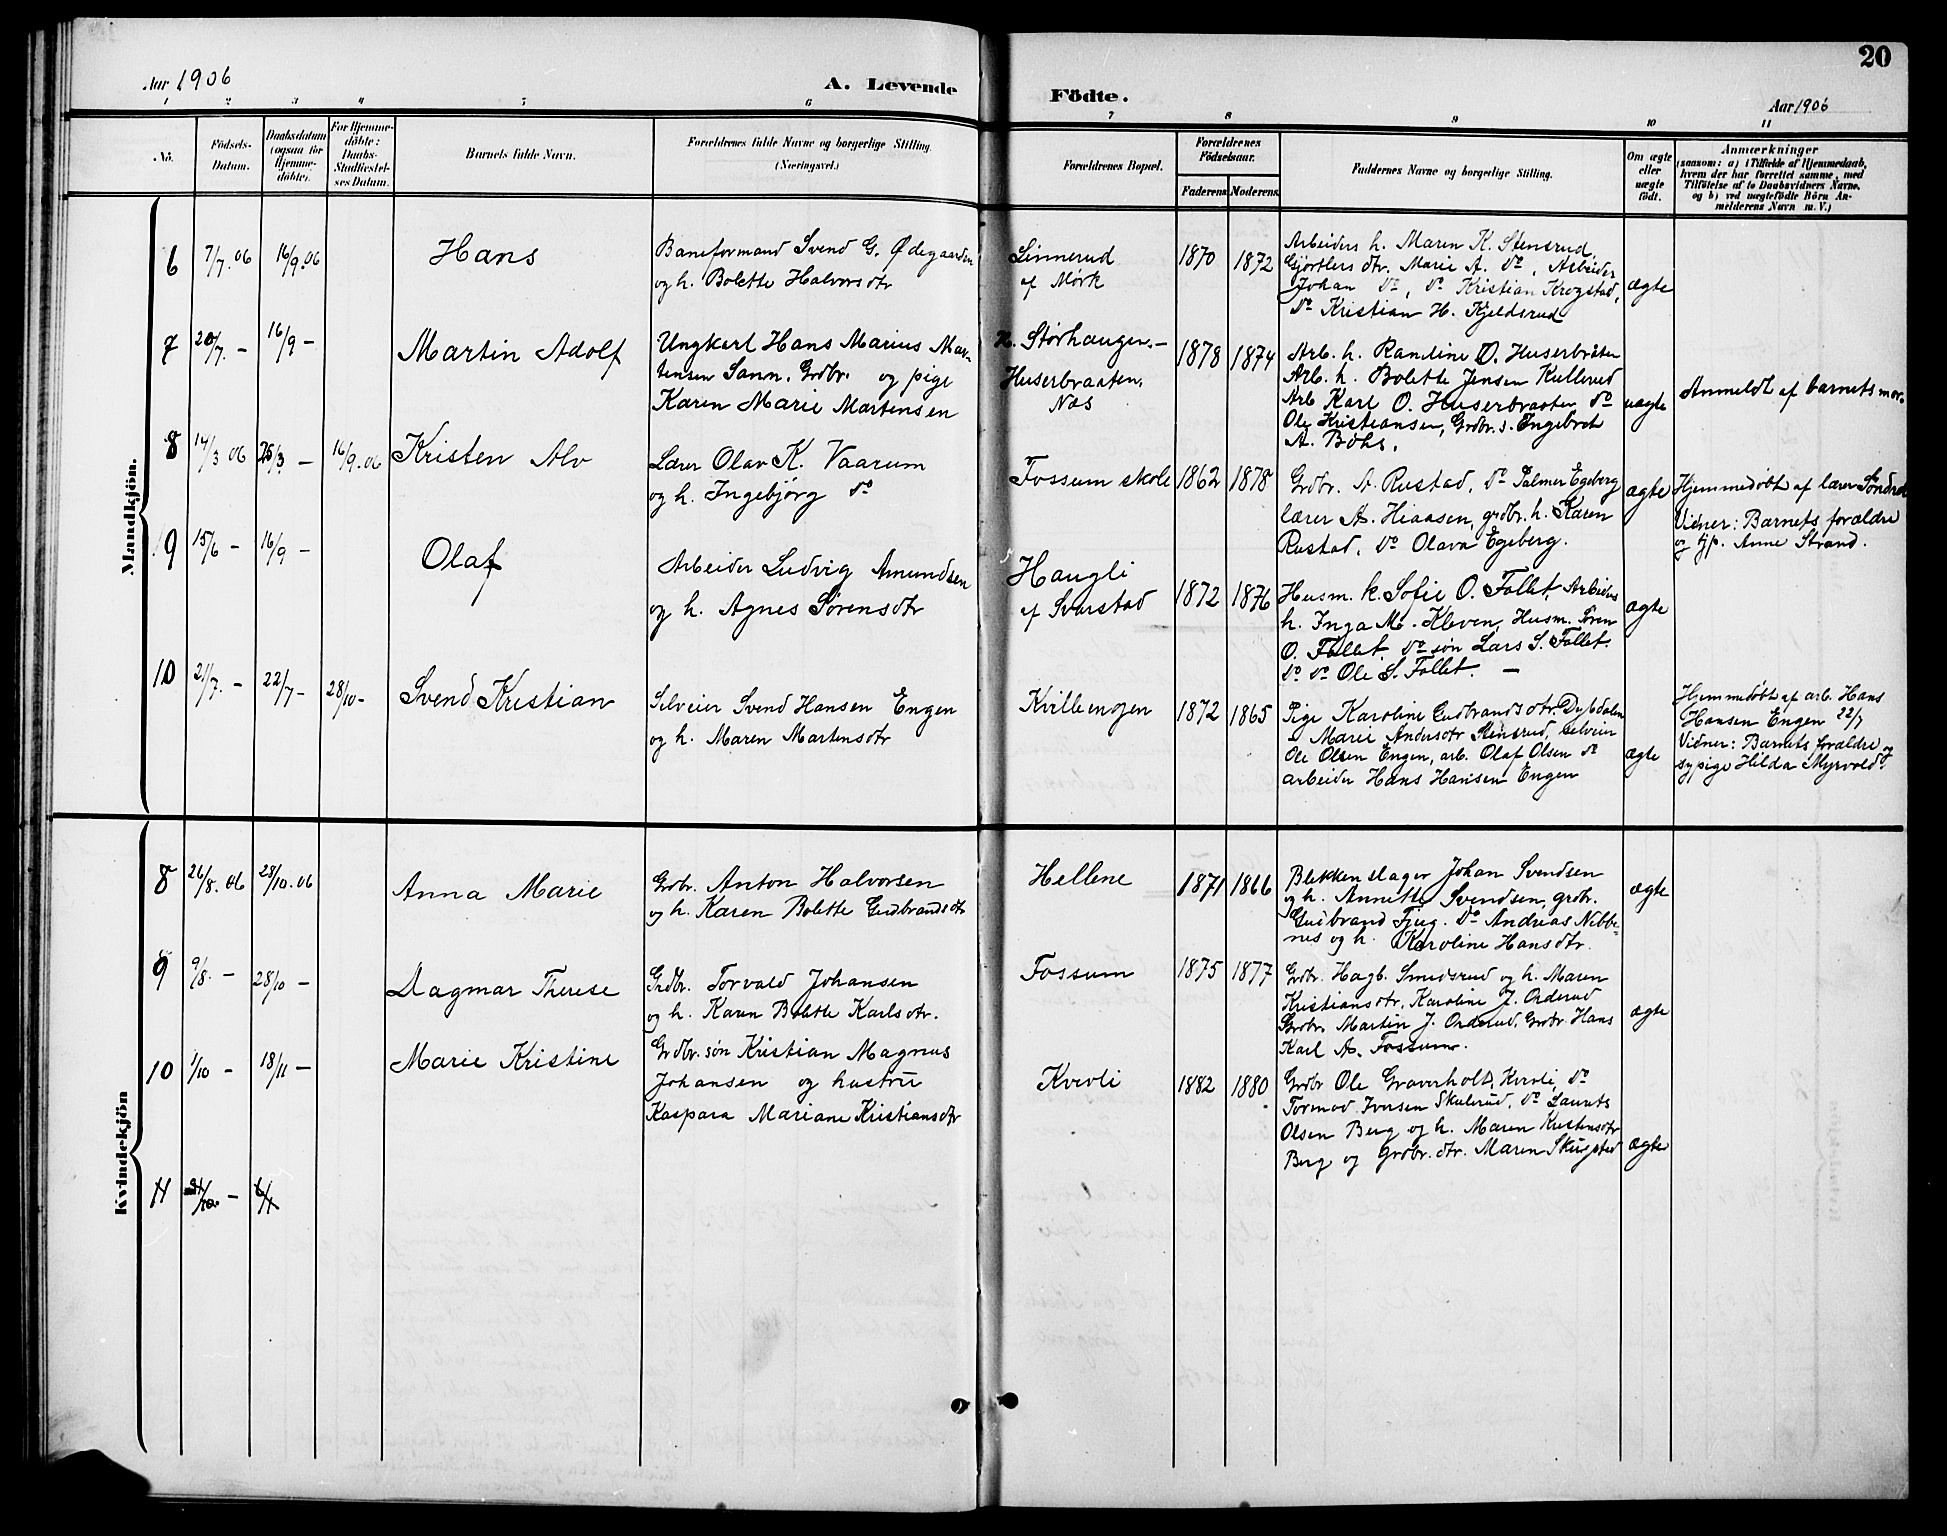 20
Aar 1906
A. Levende
Födte.
Aar 1906
1 2 3 4 5 6
7 8 9 10 11
No.
Födsels-
Datum.
Daabsdatum
(ogsaa for
Hjemme-
döbte).
For Hjemme-
döbte:
Daabs-
Stadfæstel-
ses Datum.
Barnets fulde Navn.
Forældrenes fulde Navne og borgerlige Stilling.
(Næringsvei.)
Forældrenes Bopæl.
Forældrenes
Födselsaar.
Faderens
Moderens
Faddernes Navne og borgerlige Stilling.
Om ægte
eller
uægte
födt.
Anmærkninger
(saasom: a) i Tilfælde af Hjemmedaab,
hvem der har forrettet samme, med
Tilföielse af to Daabsvidners Navne,
og b) ved uægtefödte Börn An-
melderens Navn m. V.)
Mandkjön.
6
7/7. 06
16/9. 06
Hans
Baneformand Svend G. Ødegaarden
og h. Bolette Halvorsdtr
Linnerud
af Mörk
1870
1872
Arbeiders h. Maren K. Stensrud,
Gjørtlers dtr. Marie A. do, Arbeider
Johan do, do Kristian Krogstad,
do Kristian H. Kjeldsrud
ægte
7
20/7. –
16/9 –
Martin Adolf
Ungkarl Hans Marius Mar-
tensen Sann, Grdbr. og pige
Karen Marie Martensen
N. Størhaugen –
Huserbraaten,
Næs
1878
1874
Arb. h. Randine O. Huserbråten
Arb. h. Bolette Jensen Kullerud
Arb Karl O. Huserbraaten do
Ole Kristiansen, Grdbr. s. Ingebret
A. Böhs.
uægte
Anmeldt af barnets mor.
8
14/3 06
25/3 –
16/9. 06
Kristen Alv
Lærer Olav K. Vaarum
og h. Ingebjörg do
Fossum skole
1862
1878
Grdbr. A. Rustad, do Palmer Egeberg
lærer A. Hiaasen, grdbr. h. Karen
Rustad, do Olava Egeberg.
ægte
Hjemmedöbt af lærer Söndre
Vidner: Barnets forældre
og tjp. Anne Strand.
9
15/6 –
16/9 –
Olaf
Arbeider Ludvig Amundsen
og h. Agnes Sørensdtr
Haugli
af Svarstad
1872
1876
Husm. k. Sofie O. Fallet, Arbeiders
h. Inga M. Kleven, Husm. Søren
O. Fallet, do søn Lars S. Fallet.
do do Ole S. Fallet. –
ægte
10
21/7. –
22/7 –
28/10 –
Svend Kristian
Selveier Svend Hansen Engen
og h. Maren Martensdtr
Kvillemojen
1872
1865
Pige Karoline Gudbrandsdtr. Dybdalen
„ Marie Andersdtr Stensrud, selveier
Ole Olsen Engen, arb. Olaf Olsen do
arbeider Hans Hansen Engen
ægte
Hjemmedöbt af arb. Hans
Hansen Engen 22/7
Vidner: Barnets forældre og
sypige Hilda Myrvold.
Kvindekjön
8
26/8. 06
28/10. 06
Anna Marie
Grdbr. Anton Halvorsen
og h. Karen Bolette Gudbrandsdtr
Hellene
1871
1866
Blekkenslager Johan Svendsen
og h. Annette Svendsen, grdbr.
Gudbrand Fjug. do Andreas Nibbe-
nes og h. Karoline Hansdtr.
ægte
9
9/8. –
28/10 –
Dagmar Therese
Grdbr. Torvald Johansen
og h. Karen Bolette Karlsdtr.
Fossum
1875
1877
Grdbr. Hagb. Smedsrud og h. Maren
Kristiansdtr, Karoline J. Onderud
Grdbr. Martin J. Onderud, Grdbr. Hans
Karl A. Fossum.
ægte
10
1/10 –
18/11 –
Marie Kristine
Grdbr. søn Kristian Magnus
Johansen og hustru
Kaspara Mariane Kristiansdtr
Kvevli
1882
1880
Grdbr Ole Graverholt, Kvevli, do
Tormod Iversen Skulerud, do Laurits
Olsen Berg og h. Maren Kristensdtr
Berg og Grdbr. dtr. Maren Skugstad
ægte
11